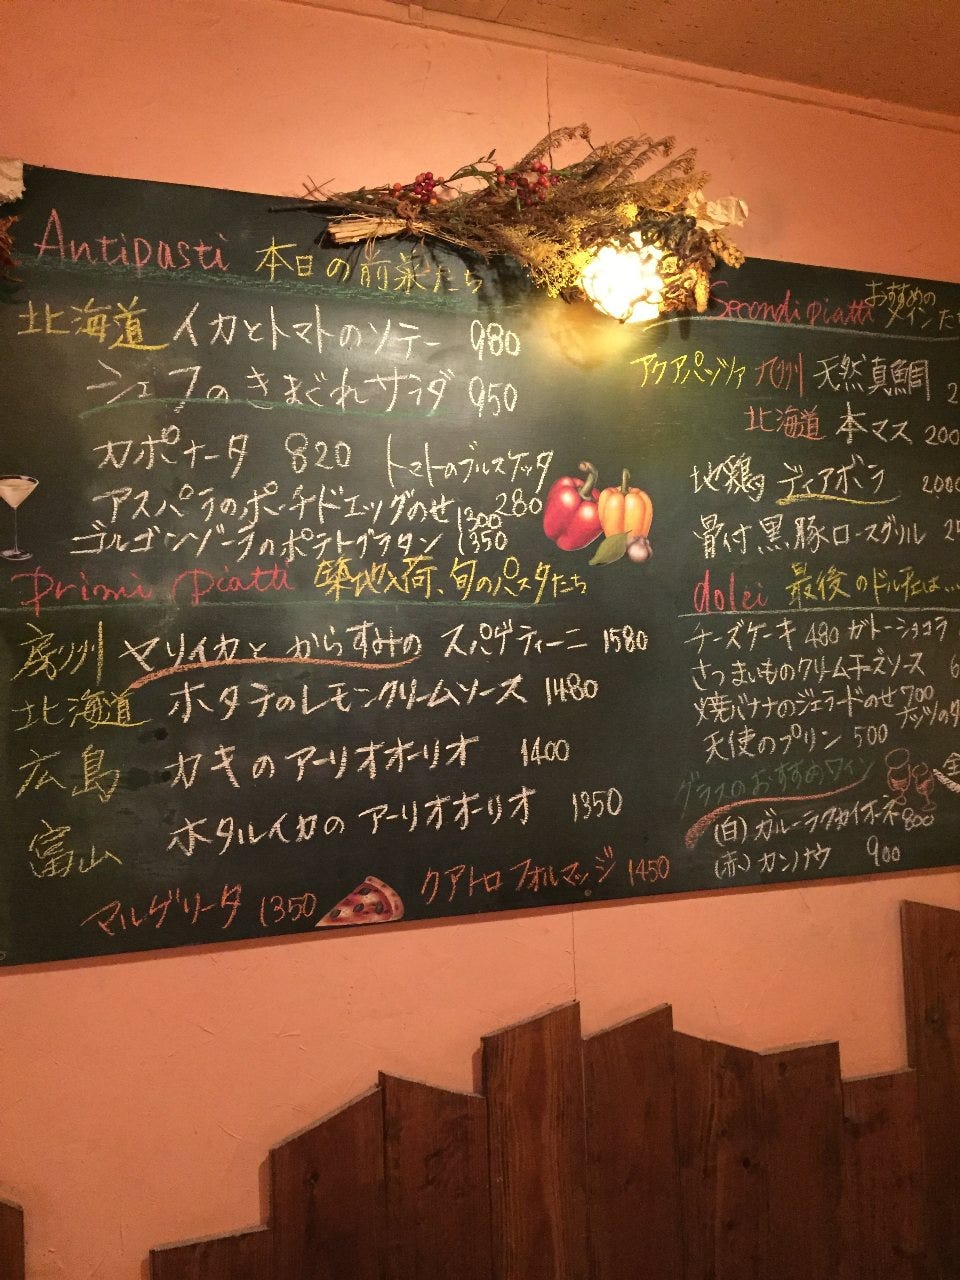 Antipasti 本日の前菜たち
北海道 イカとトマトのソテー 980
シェフのきまぐれサラダ 950
カポナータ 820 トマトのブルスケッタ 280
アスパラのポーチドエッグのせ 1300
ゴルゴンゾーラのポテトグラタン 1350
Primi piatti 築地入荷、旬のパスタたち
房州 マリイカとからすみのスパゲティーニ 1580
北海道 ホタテのレモンクリームソース 1480
広島 カキのアーリオオーリオ 1400
富山 ホタルイカのアーリオオーリオ 1350
マルゲリータ 1350 クアトロフォルマッジ 1450
Secondi piatti おすすめの
メインたち
アクアパッツァ 九州 天然真鯛
北海道 本マス 200
地鶏 ディアボラ 2000
骨付黒豚ロースグリル
dolci 最後のドルチェは...
チーズケーキ 480 ガトーショコラ
さつまいものクリームチーズソース
焼バナナのジェラードのせ 700
ナッツの
天使のプリン 500
グラスのおすすめワイン
(白) 800
(赤) カンノナウ 900